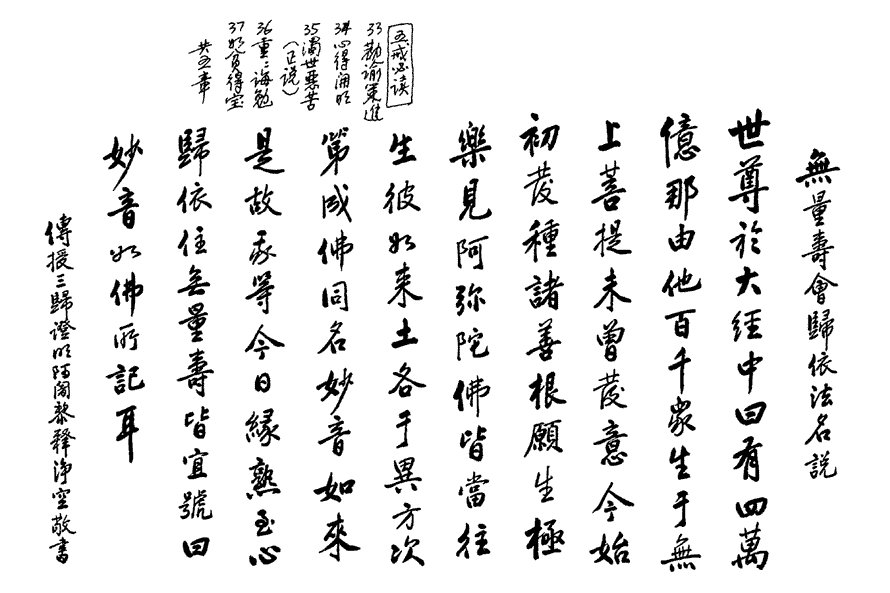 無量壽會歸依法名說
世尊於大經中曰有四萬
億那由他百千眾生于無
上菩提未曾發意今始
初發種諸善根願生極
樂見阿弥陀佛皆當往
生彼如来土各于異方次
第成佛同名妙音如來
是故我等今日緣熟至心
歸依住无量壽皆宜號曰
妙音如佛所記耳
傳授三歸證明阿闍黎釋淨空敬書
五戒必读
33勸諭策進
34心得開明
35濁世惡苦
(正说)
36重重誨勉
37如貧得宝
共五章